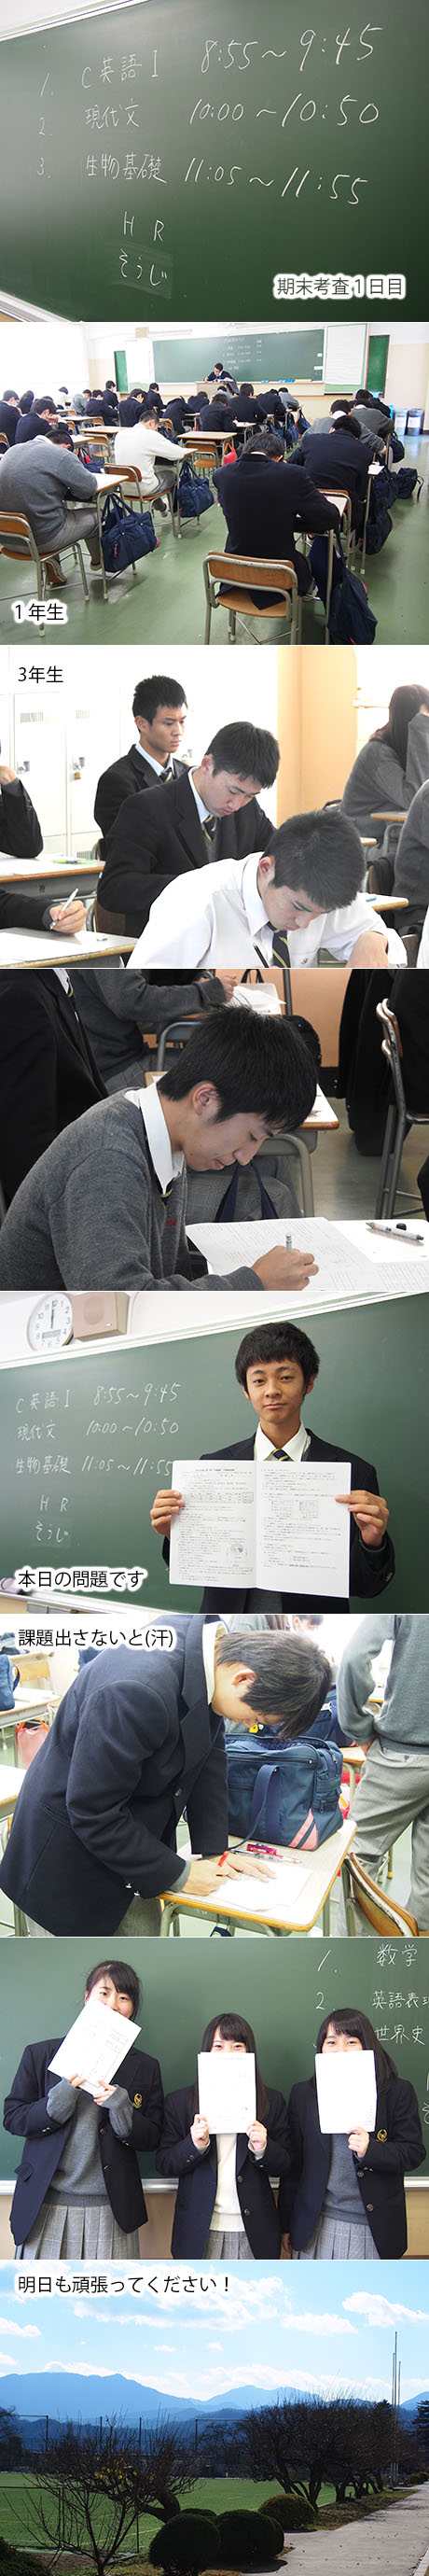 1. C英語I 8:55～9:45
2. 現代文 10:00～10:50
3. 生物基礎 11:05～11:55
HR
そうじ
期末考査1日目
1年生
3年生
C英語I 8:55～9:45
現代文 10:00～10:50
生物基礎 11:05～11:55
HR
そうじ
本日の問題です
課題出さないと(汗)
1. 数学
2. 英語表現
世界史
明日も頑張ってください！